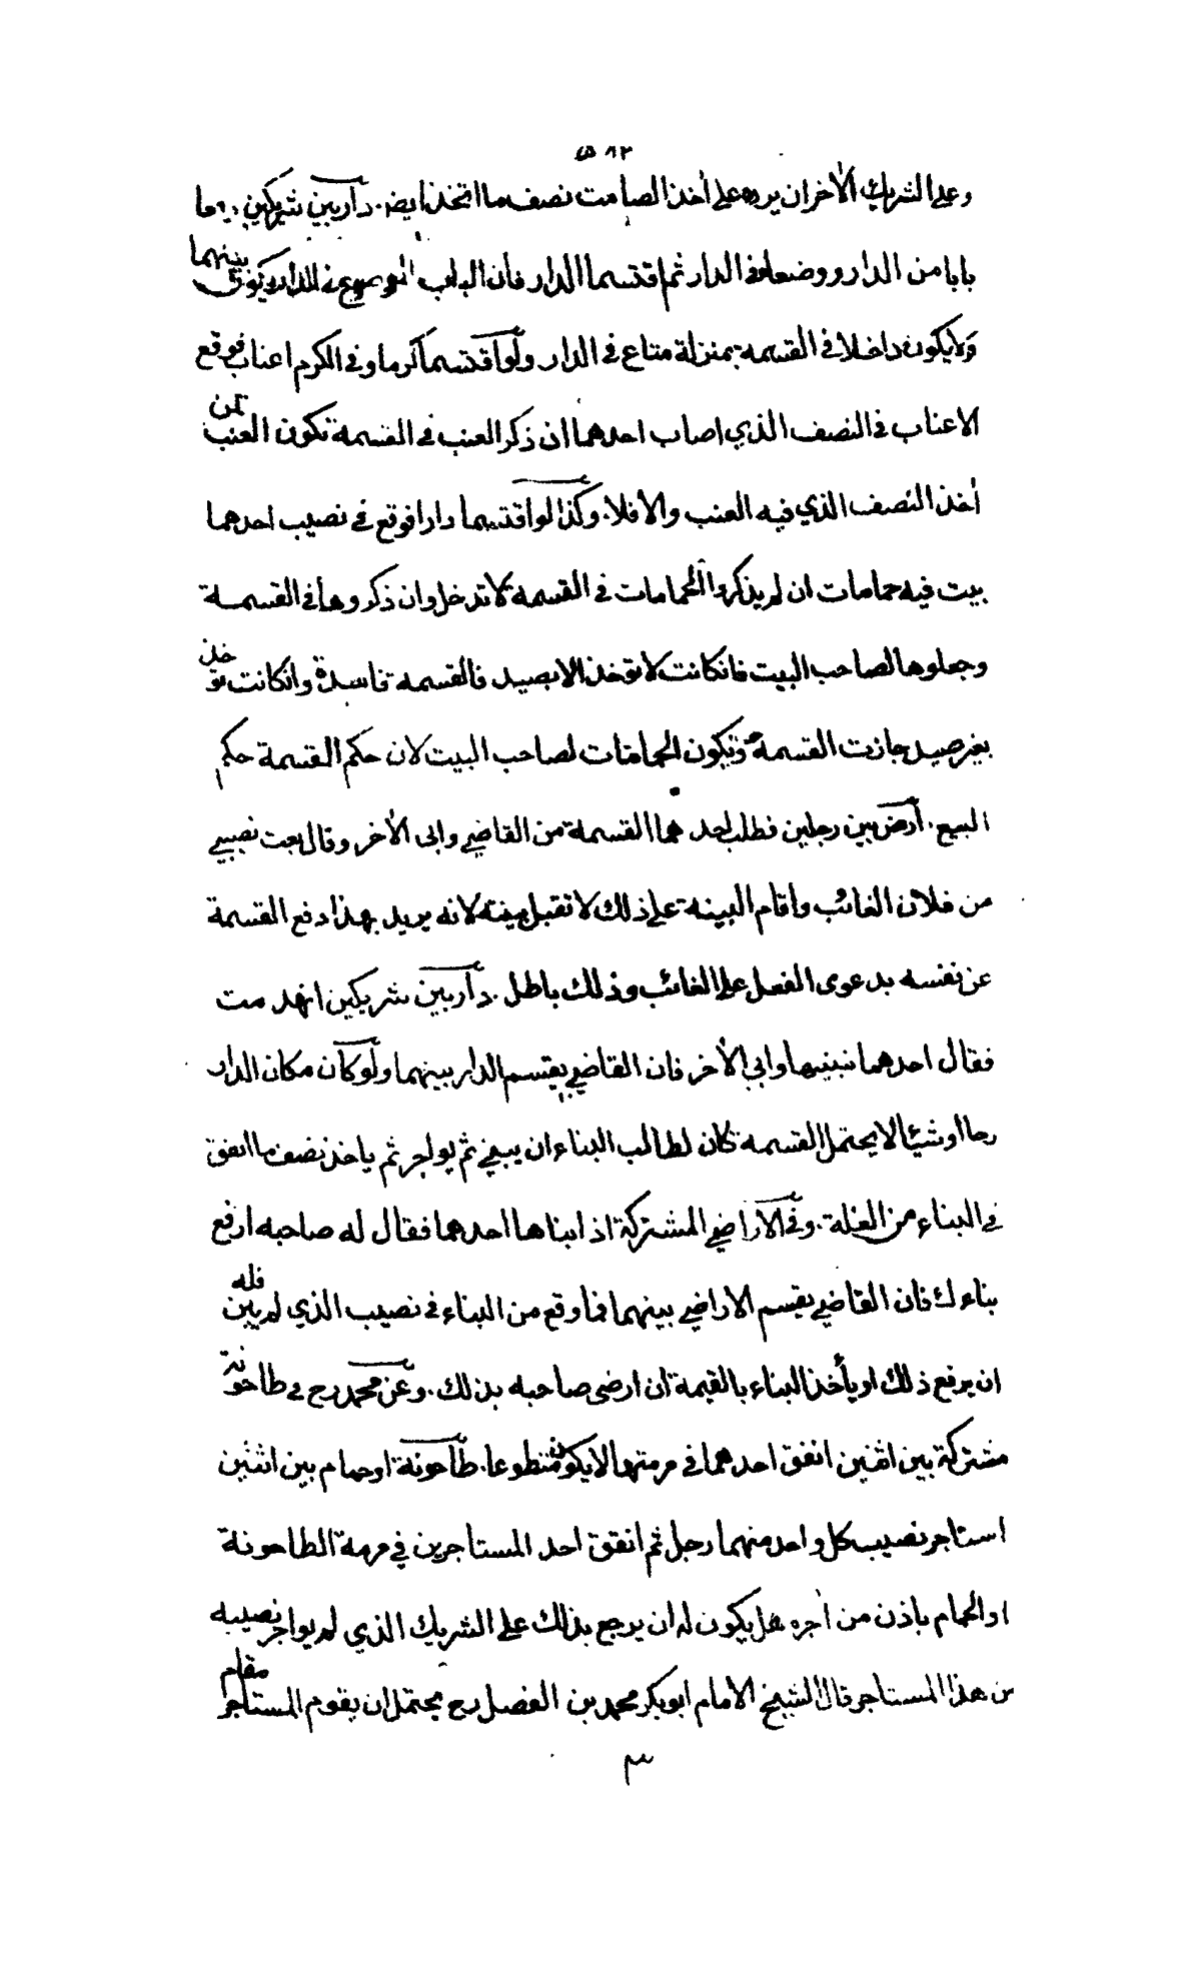 ٥٨٢
وعلى الشريك الآخر ان يرد على أخذ الصامت نصف ما اتخذ ايضا. دار بين شريكين رفعا
بابا من الدار ووضعاه في الدار ثم اقتسما الدار فان الباب الموضوع في الدار يكون بينهما
ولا يكون داخلا في القسمة بمنزلة متاع في الدار ولو اقتسما كرما وفي الكرم اعناب فوقع
الاعناب في النصف الذي اصاب احدهما ان ذكر العنب في القسمة تكون العنب لمن
أخذ النصف الذي فيه العنب والا فلا. وكذا لو اقتسما دارا فوقع في نصيب احدهما
بيت فيه حمامات ان لم يذكروا الحمامات في القسمة لا تدخل وان ذكروها في القسمة
وجعلوها لصاحب البيت فان كانت لا تؤخذ الا بصيد فالقسمة فاسدة وان كانت تؤخذ
بغير صيد جازت القسمة وتكون الحمامات لصاحب البيت لان حكم القسمة حكم
البيع. أرض بين رجلين فطلب احدهما القسمة من القاضي وابى الآخر وقال بعت نصيبي
من فلان الغائب واقام البينة على ذلك لا تقبل بينته لانه يريد بهذا دفع القسمة
عن نفسه بدعوى الفعل على الغائب وذلك باطل. دار بين شريكين انهدمت
فقال احدهما نبنيها وابى الآخر فان القاضي يقسم الدار بينهما ولو كان مكان الدار
رحا او شيئا لا يحتمل القسمة كان لطالب البناء ان يبني ثم يواجر ثم ياخذ نصف ما انفق
في البناء من الغلة. وفي الاراضي المشتركة اذا بناها احدهما فقال له صاحبه ارفع
بناءك فان القاضي يقسم الاراضي بينهما فما وقع من البناء في نصيب الذي لم يبن فله
ان يرفع ذلك او يأخذ البناء بالقيمة ان ارضى صاحبه بذلك. وعن محمد رح في طاحونة
مشتركة بين اثنين انفق احدهما في مرمتها لا يكون متطوعا. طاحونة او حمام بين اثنين
استاجر نصيب كل واحد منهما رجل ثم انفق احد المستاجرين في مرمة الطاحونة
او الحمام باذن من أجره هل يكون له ان يرجع بذلك على الشريك الذي لم يواجر نصيبه
من هذا المستاجر قال الشيخ الامام ابو بكر محمد بن الفضل رح يحتمل ان يقوم المستاجر مقام